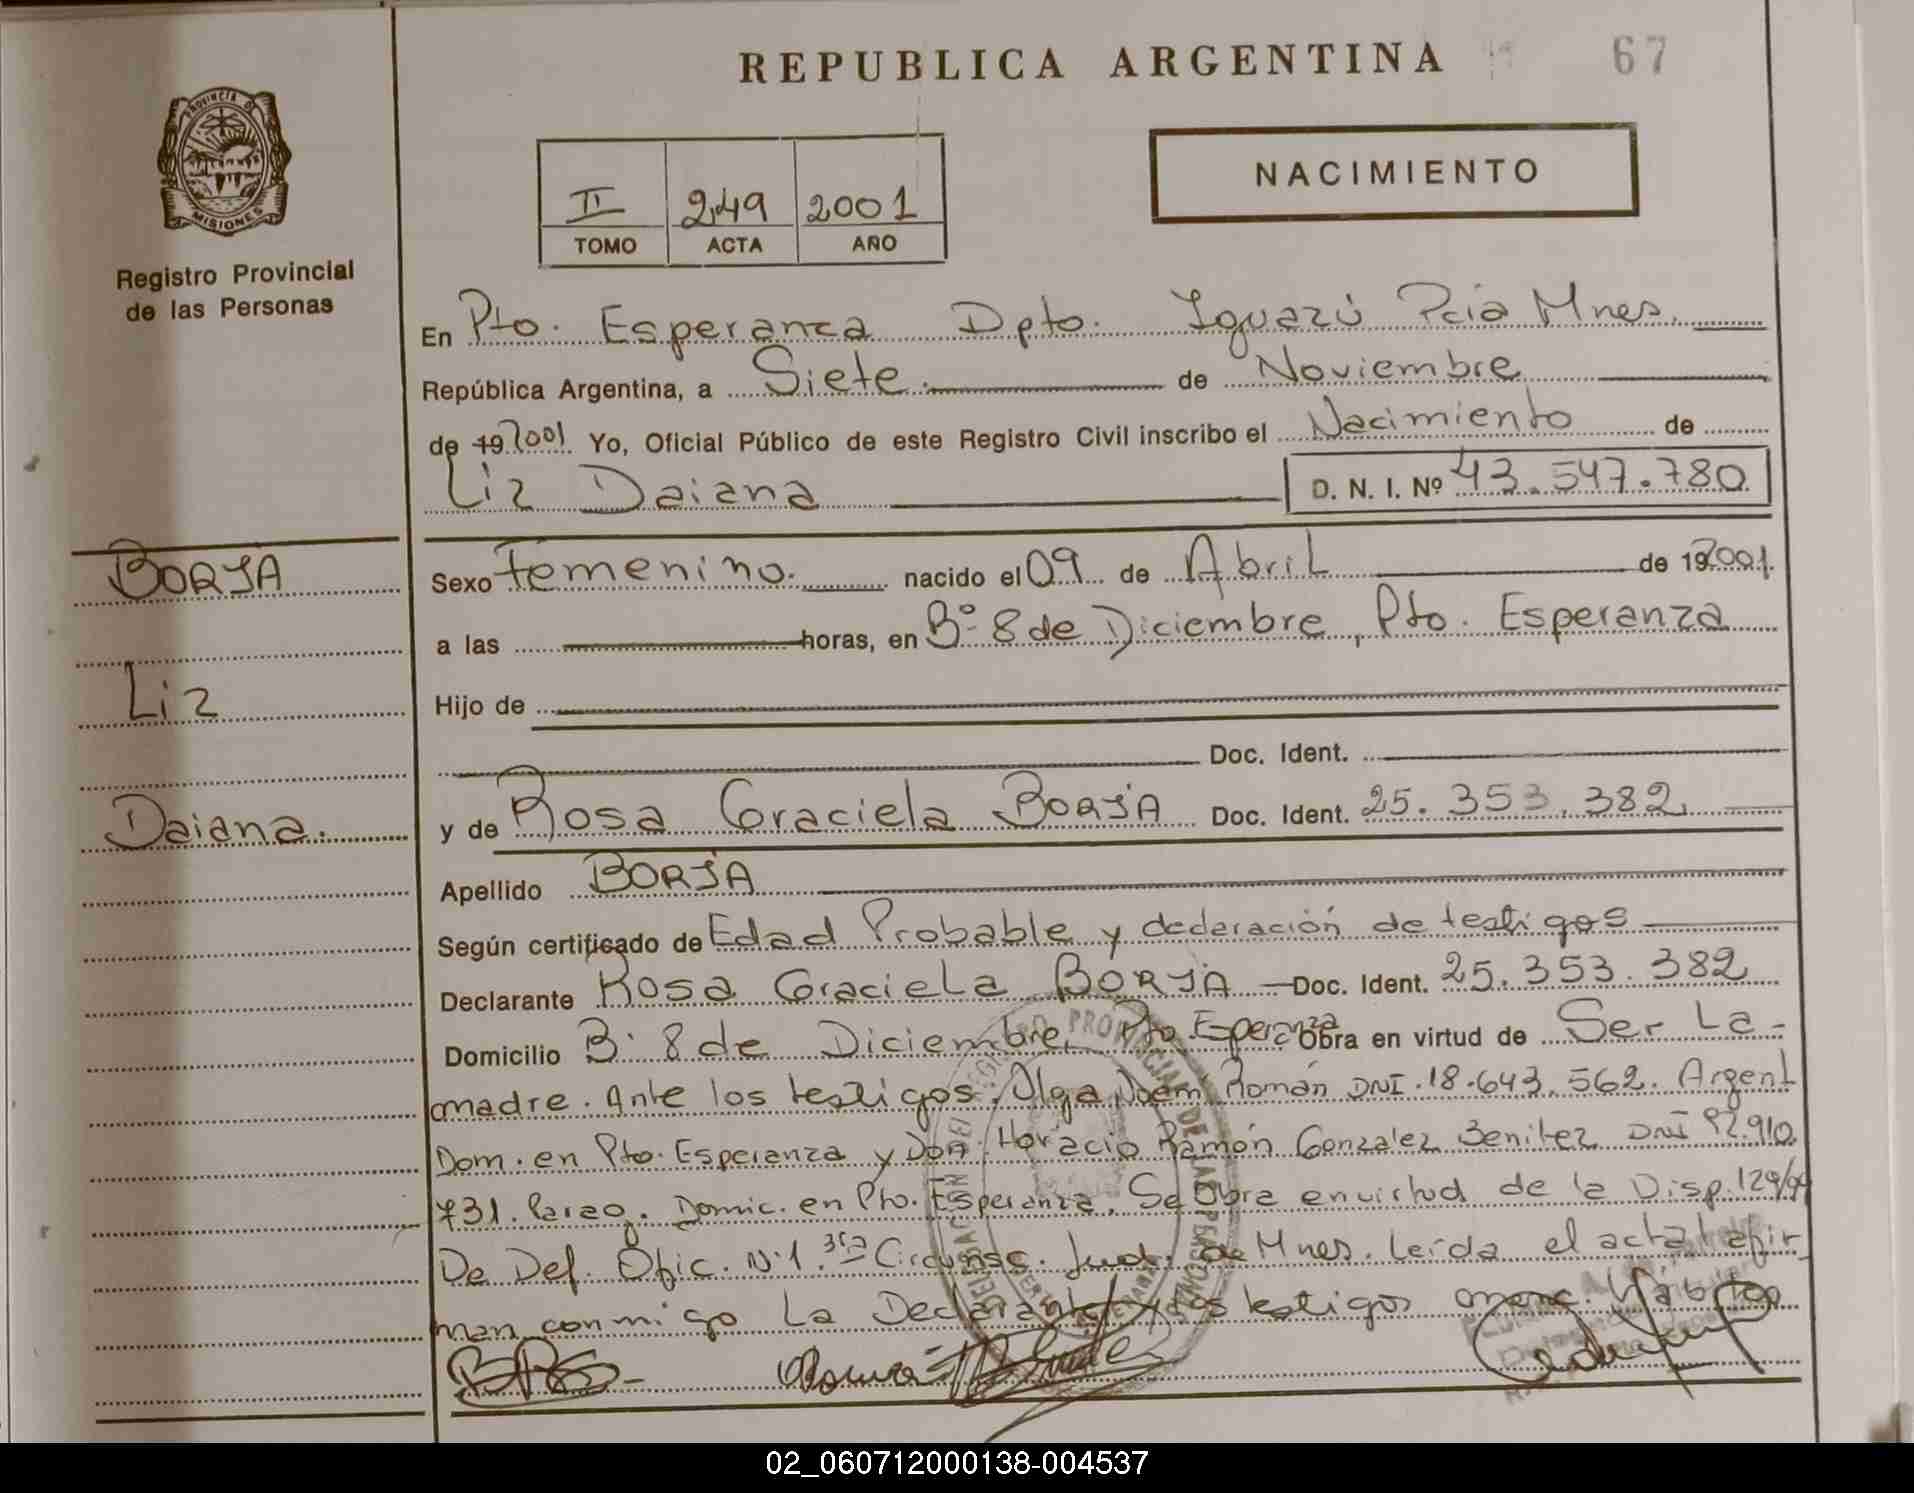 REPUBLICA ARGENTINA
67
PROVINCIA DE
MISIONES
Registro Provincial
de las Personas
II 249 2001
TOMO ACTA AÑO
NACIMIENTO
En Pto. Esperanza Dpto. Iguazú Pcia Mnes.
República Argentina, a Siete. de Noviembre
de 19 2001 Yo, Oficial Público de este Registro Civil inscribo el Nacimiento de
Liz Daiana D. N. I. Nº 43.547.780
BORJA
Liz
Daiana.
Sexo Femenino. nacido el 09 de Abril de 19 2001.
a las horas, en Bº 8 de Diciembre, Pto. Esperanza
Hijo de
Doc. Ident.
y de Rosa Graciela BORJA Doc. Ident. 25.353.382.
Apellido BORJA
Según certificado de Edad Probable y declaración de testigos
Declarante Rosa Graciela BORJA Doc. Ident. 25.353.382
Domicilio Bº 8 de Diciembre, Pto. Esperanza Obra en virtud de Ser La
madre. Ante los testigos. Olga Noemi Román DNI.18.643.562. Argent
Dom. en Pto. Esperanza y Don. Horacio Ramón Gonzalez Benitez DNI 92.910
731. Parag. Domic. en Pto. Esperanza. Se Obra en virtud de la Disp. 129/99
De Def. Ofic. Nº1. 3ra Circunsc. Jud. de Mnes. Leída el acta la fir-
man conmigo La Declarante y los testigos
02_060712000138-004537